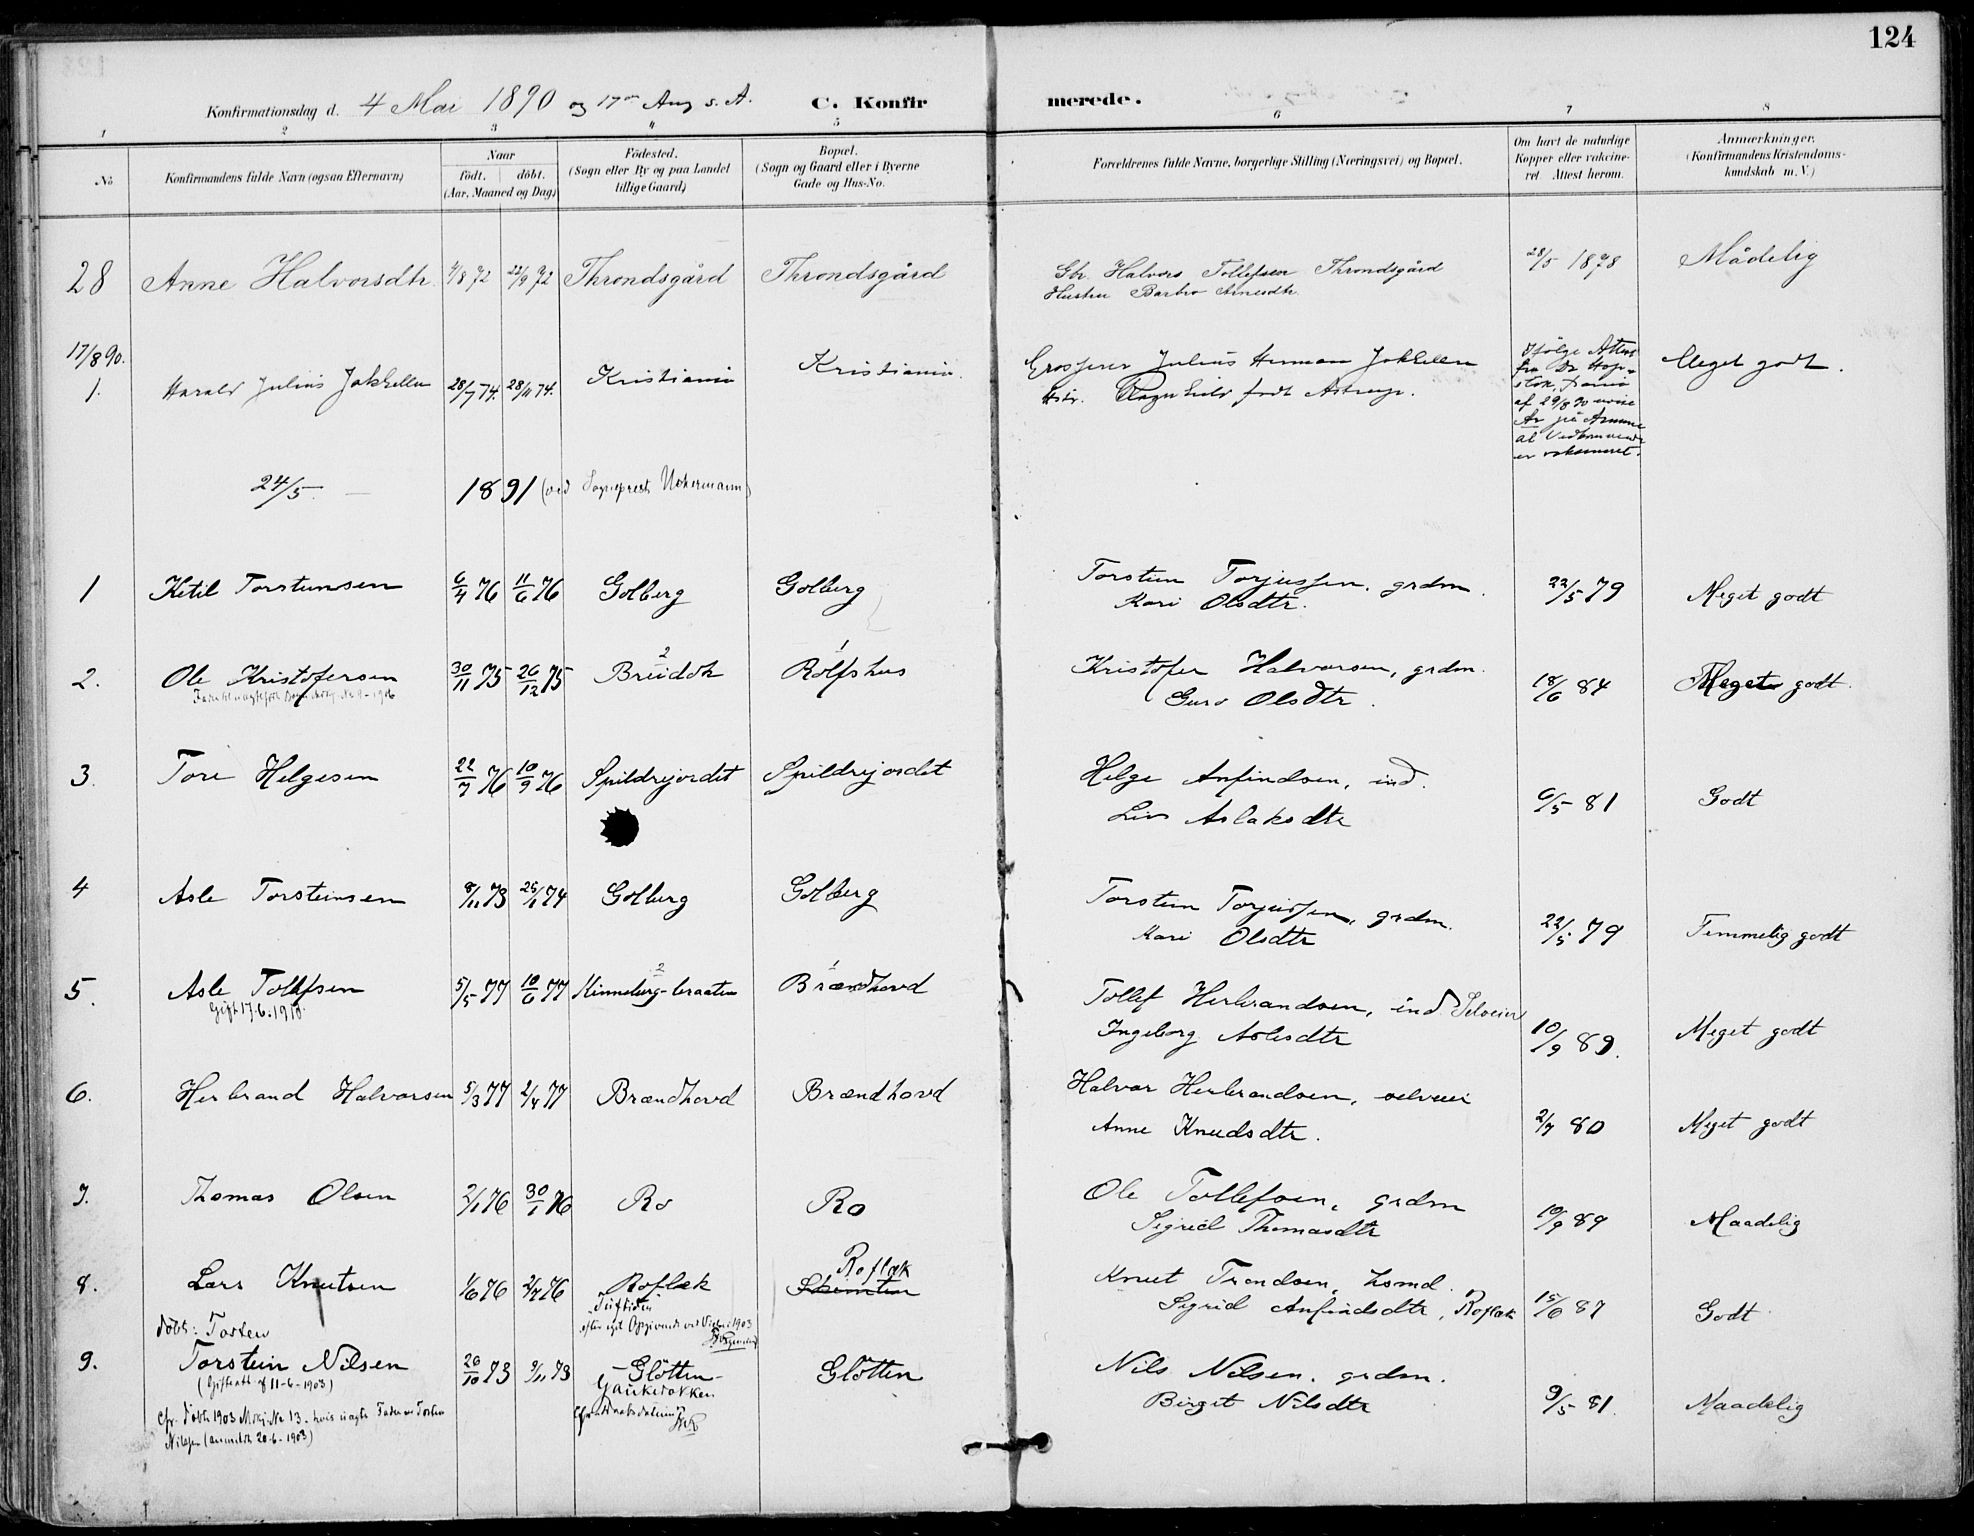 124
Konfirmationsdag d. 4 Mai 1890 og 17de Aug s. A. C. Konfirmerede.
1 2 3 4 5 6 7 8
No
Konfirmandens fulde Navn (ogsaa Efternavn)
Naar
födt. döbt.
(Aar, Maaned og Dag)
Födested.
(Sogn eller By og paa Landet
tillige Gaard)
Bopæl.
(Sogn og Gaard eller i Byerne
Gade og Hus-No.
Forældrenes fulde Navne, borgerlige Stilling (Næringsvei) og Bopæl.
Om havt de naturlige
Kopper eller vakcine-
ret. Attest herom.
Anmærkninger.
(Konfirmandens Kristendoms-
kundskab m. V.)
28 Anne Halvorsdtr. 4/8 72 22/9 72 Throndsgård Throndsgård
Gbr. Halvors Tollefsen Throndsgård
Hustru Barbro Arnesdtr.
28/5 1878 Mådelig
17/8 90.
1. Harald Julius Jakhelln 28/7 74. 28/11 74. Kristiania Kristiania.
Grosserer Julius Herman Jakhelln
Hstr. Ragnhild født Astrup.
Ifølge Attest
fra Dr Hop-
stok,
af 29/8 90
Ar på Armene
at Vedkommende
er vakcineret.
Meget godt.
24/5. — 1891 (ved Sogneprest Uckermann)
1 Ketil Torsteinsen 6/4 76 11/6 76 Golberg Golberg
Torstein Torjussen, grdm.
Kari Olsdtr.
22/5 79 Meget godt
2. Ole Kristofersen 30/11 75 26/12 75 Breidok 2 Rolfshus 1
Kristofer Halvorsen, grdm.
Guro Olsdtr.
18/6 84 Meget godt.
3. Tore Helgesen 22/7 76 10/9 76 Spildrejordet Spildrejordet
Helge Anfindsen, ind.
Liv Aslaksdtr
6/5 81 Godt
4 Asle Torsteinsen 8/11 73 25/1 74 Golberg Golberg
Torstein Torjussen, grdm.
Kari Olsdtr
22/5 79 Temmelig godt
5. Asle Tollefsen 5/5 77 10/6 77 Kinneberg-braaten 2 Brændhovd 1
Gift 17.6.1910.
Tollef Herbrandsen, ind. Selveier
Ingeborg Aslesdtr
10/9 89. Meget godt
6. Herbrand Halvorsen 5/3 77 2/4 77 Brændhovd Brændhovd
Halvor Herbrandsen, selveier
Anne Knudsdtr.
2/7 80 Meget godt
7. Thomas Olsen 2/1 76 30/1 76 Ro Ro
Ole Tollefsen, grdm
Sigrid Thomasdtr
10/9 89 Maadelig
8. Lars Knutsen 1/6 76 2/7 76 Roflæk Roflæk
Knut Trondsen, husmd.
Sigrid Anfindsdtr, Roflæk
15/6 87 Godt
døbt: Tosten
efter eget Opgivende ved Vielsen 1903
9. Torstein Nilsen 26/10 73 9/11 73 Glötten Glötten
(Gifteatt. af 11-6-1903)
Gaukerokken
cfr. døbte 1903 Mskj. No 13. hvis uægte Fader er Tosten
Nilsen (anmeldt 20-6-1903)
Nils Nilsen. grdm.
Birgit Nilsdtr
9/5 81. Maadelig